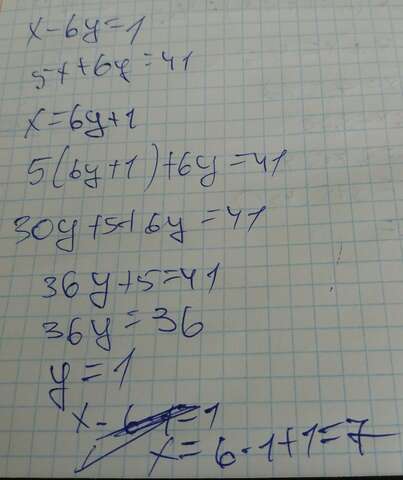 x-6y=1
5x+6y=41
x=6y+1
5(6y+1)+6y=41
30y+5+6y=41
36y+5=41
36y=36
y=1
x-6·1=1
x=6·1+1=7